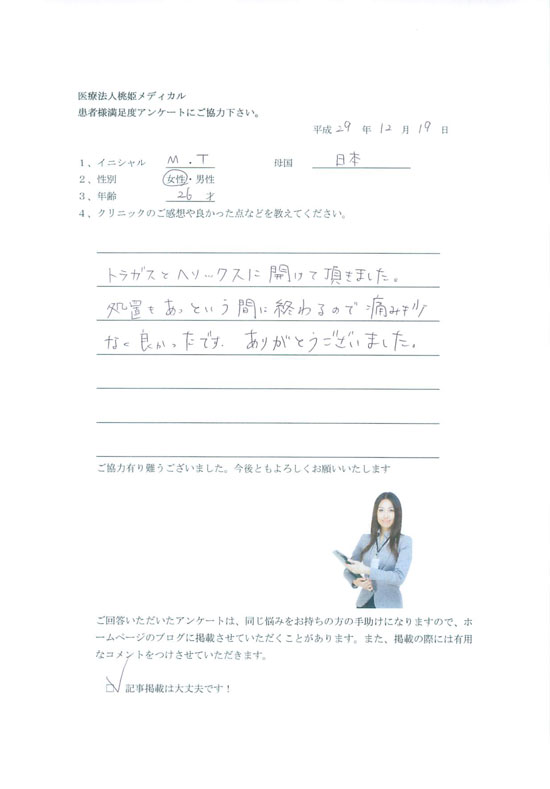 医療法人桃姫メディカル
患者様満足度アンケートにご協力下さい。
平成 29 年 12 月 19 日
1、イニシャル M . T 母国 日本
2、性別 女性・男性
3、年齢 26 才
4、クリニックのご感想や良かった点などを教えてください。
トラガスとヘリックスに開けて頂きました。
処置もあっという間に終わるので痛みも少
なく良かったです. ありがとうございました。
ご協力有り難うございました。今後ともよろしくお願いいたします
ご回答いただいたアンケートは、同じ悩みをお持ちの方の手助けになりますので、ホ
ームページのブログに掲載させていただくことがあります。また、掲載の際には有用
なコメントをつけさせていただきます。
☑ 記事掲載は大丈夫です！